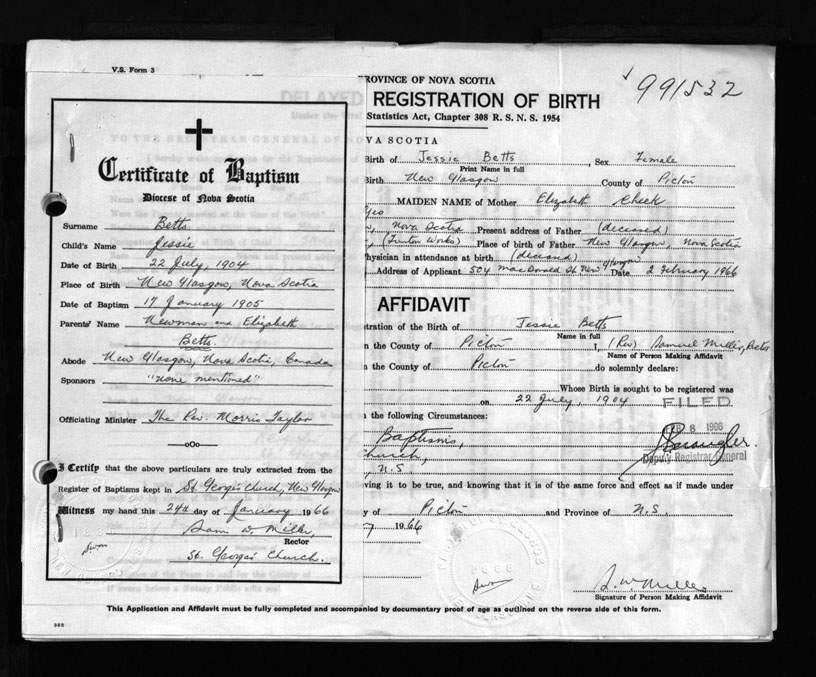 V.S. Form 3
Certificate of Baptism
Diocese of Nova Scotia
Surname Betts
Child's Name Jessie
Date of Birth 22 July, 1904
Place of Birth New Glasgow, Nova Scotia
Date of Baptism 17 January 1905
Parents' Name Newman and Elizabeth
Betts.
Abode New Glasgow, Nova Scotia, Canada
Sponsors "none mentioned"
Officiating Minister The Rev. Morris Taylor
—oOo—
I Certify that the above particulars are truly extracted from the
Register of Baptisms kept in St. George's Church, New Glasgow
Witness my hand this 24th day of January 1966
Sam W. Miller,
Rector
St. George's Church.
ROVINCE OF NOVA SCOTIA
991532
DELAYED REGISTRATION OF BIRTH
Statistics Act, Chapter 308 R. S. N. S. 1954
VA SCOTIA
Birth of Jessie Betts, Sex Female
Print Name in full
Birth New Glasgow County of Pictou
MAIDEN NAME of Mother Elizabeth Cheek
Yes
Nova Scotia Present address of Father (deceased)
(Trenton Works) Place of birth of Father New Glasgow, Nova Scotia
hysician in attendance at birth (deceased)
Address of Applicant 504 MacDonald St. New Glasgow Date 2 February 1966
AFFIDAVIT
tration of the Birth of Jessie Betts
Name in full
n the County of Pictou I, (Rev) Samuel Miller, Betts
Name of Person Making Affidavit
n the County of Pictou do solemnly declare:
Whose Birth is sought to be registered was
on 22 July, 1904
FILED
8 1966
n the following Circumstances:
Baptisms,
hurch,
N.S.
Deputy Registrar General
ving it to be true, and knowing that it is of the same force and effect as if made under
y of Pictou and Province of N.S.
1966
S. W. Miller
Signature of Person Making Affidavit
This Application and Affidavit must be fully completed and accompanied by documentary proof of age as outlined on the reverse side of this form.